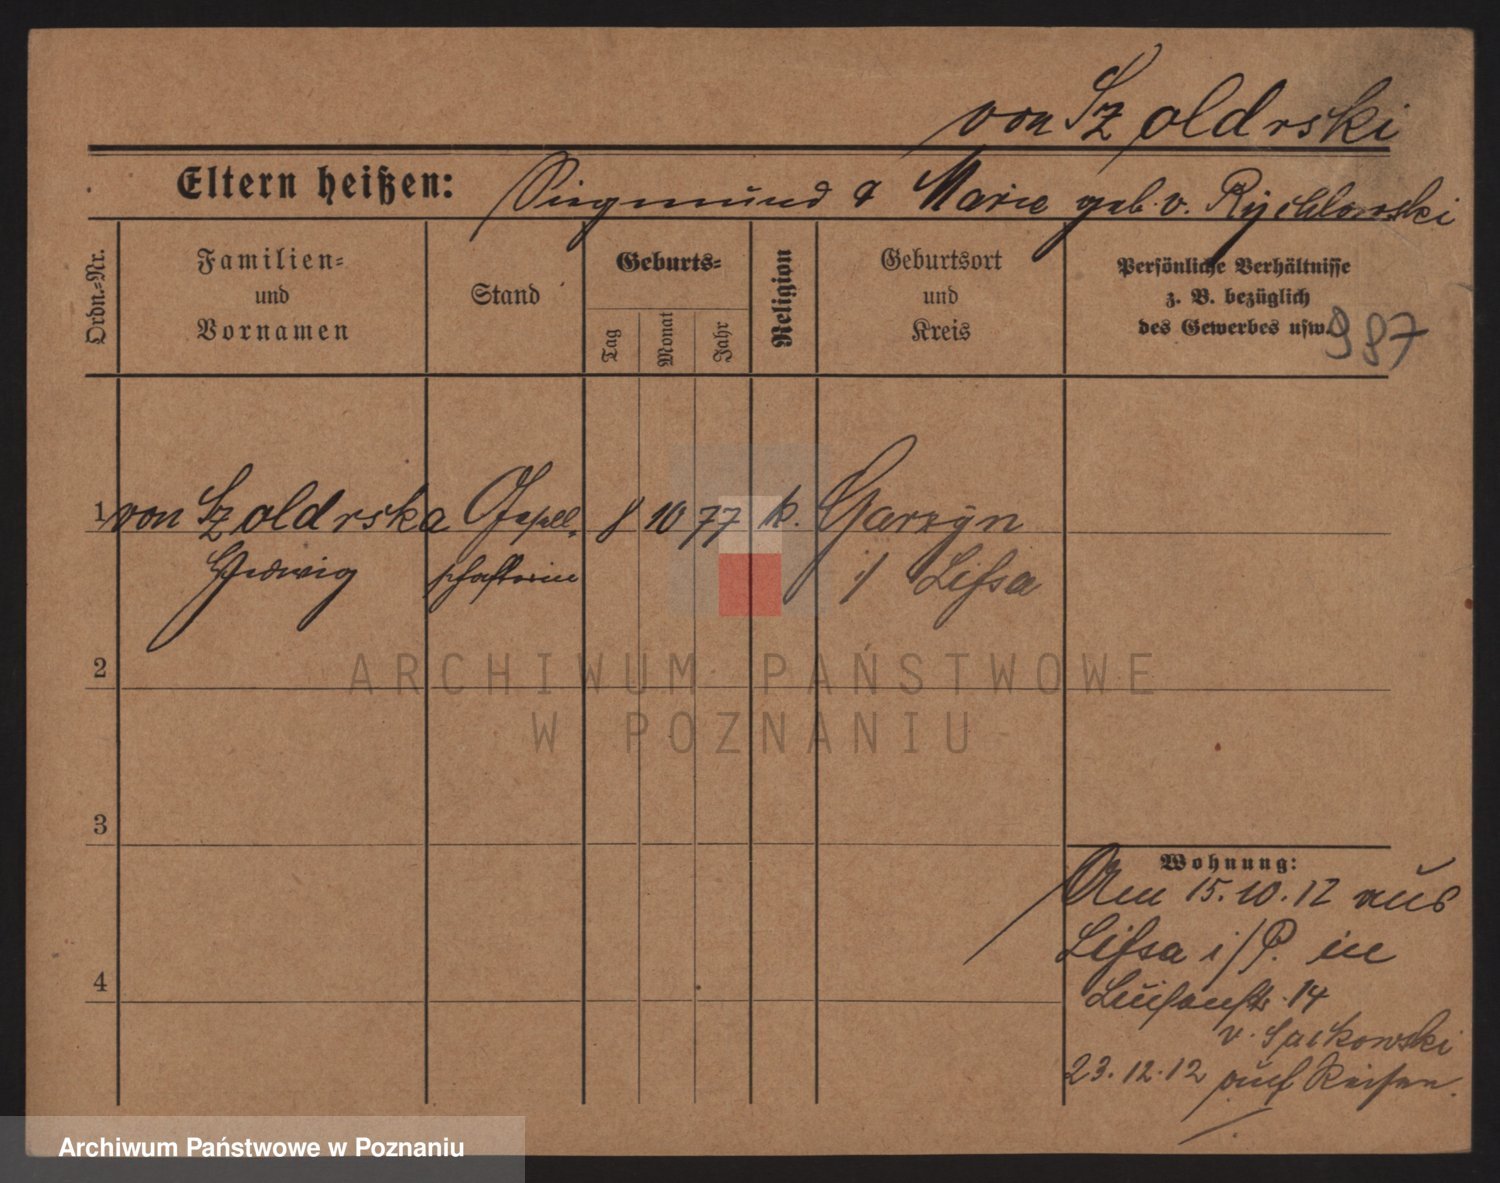 von Szoldrski
Eltern heißen: Siegmund & Marie geb. v. Rychlowski
Ordn.-Nr.
Familien-
und
Vornamen
Stand
Geburts-
Tag
Monat
Jahr
Religion
Geburtsort
und
Kreis
Persönliche Verhältnisse
z. B. bezüglich
des Gewerbes usw.
987
1 von Szoldrska Gesell- 8 10 77 k. Garzyn
Hedwig schafterin i/ Lissa
2
ARCHIWUM PAŃSTWOWE
W POZNANIU
3
Wohnung:
Am 15.10.12 aus
Lissa i/P. in
4
Luisenstr. 14
v.
23.12.12 auf Reisen.
Archiwum Państwowe w Poznaniu